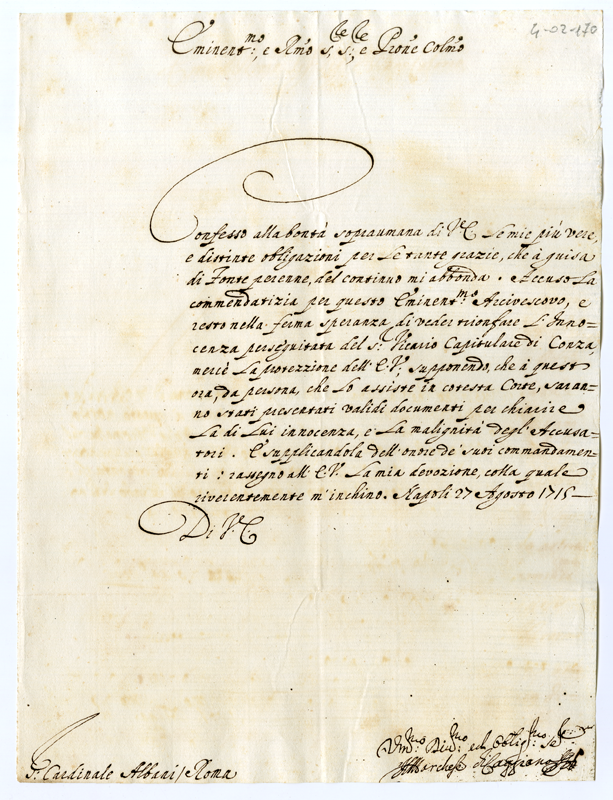 4-02-170
Eminent:mo, e Rmo s:re, s:re, e Prone Colmo
Confesso alla bontà sopraumana di V.E. le mie più vere,
e distinte obligazioni per le tante grazie, che à guisa
di Fonte perenne, del continuo mi abbonda. Accuso la
commendatizia per questo Eminent:mo Arcivescovo, e
resto nella ferma speranza di veder trionfare l'Inno=
cenza perseguitata del s:r Vicario Capitulare di Conza,
mercè la protezzione dell'E.V., supponendo, che à quest'
ora, da persona, che lo assiste in cotesta Corte, saran=
no stati presentati validi documenti per chiarire
la di Lui innocenza, e la malignità degl'Accusa=
tori. E supplicandola dell'onore de' suoi commandamen=
ti: rassegno all'E.V. la mia devozione, colla quale
riverentemente m'inchino. Napoli 27 Agosto 1715
Di V.E.
Um:mo Div:mo ed Oblig:mo se:re
Il Marchese
S:r Cardinale Albani / Roma